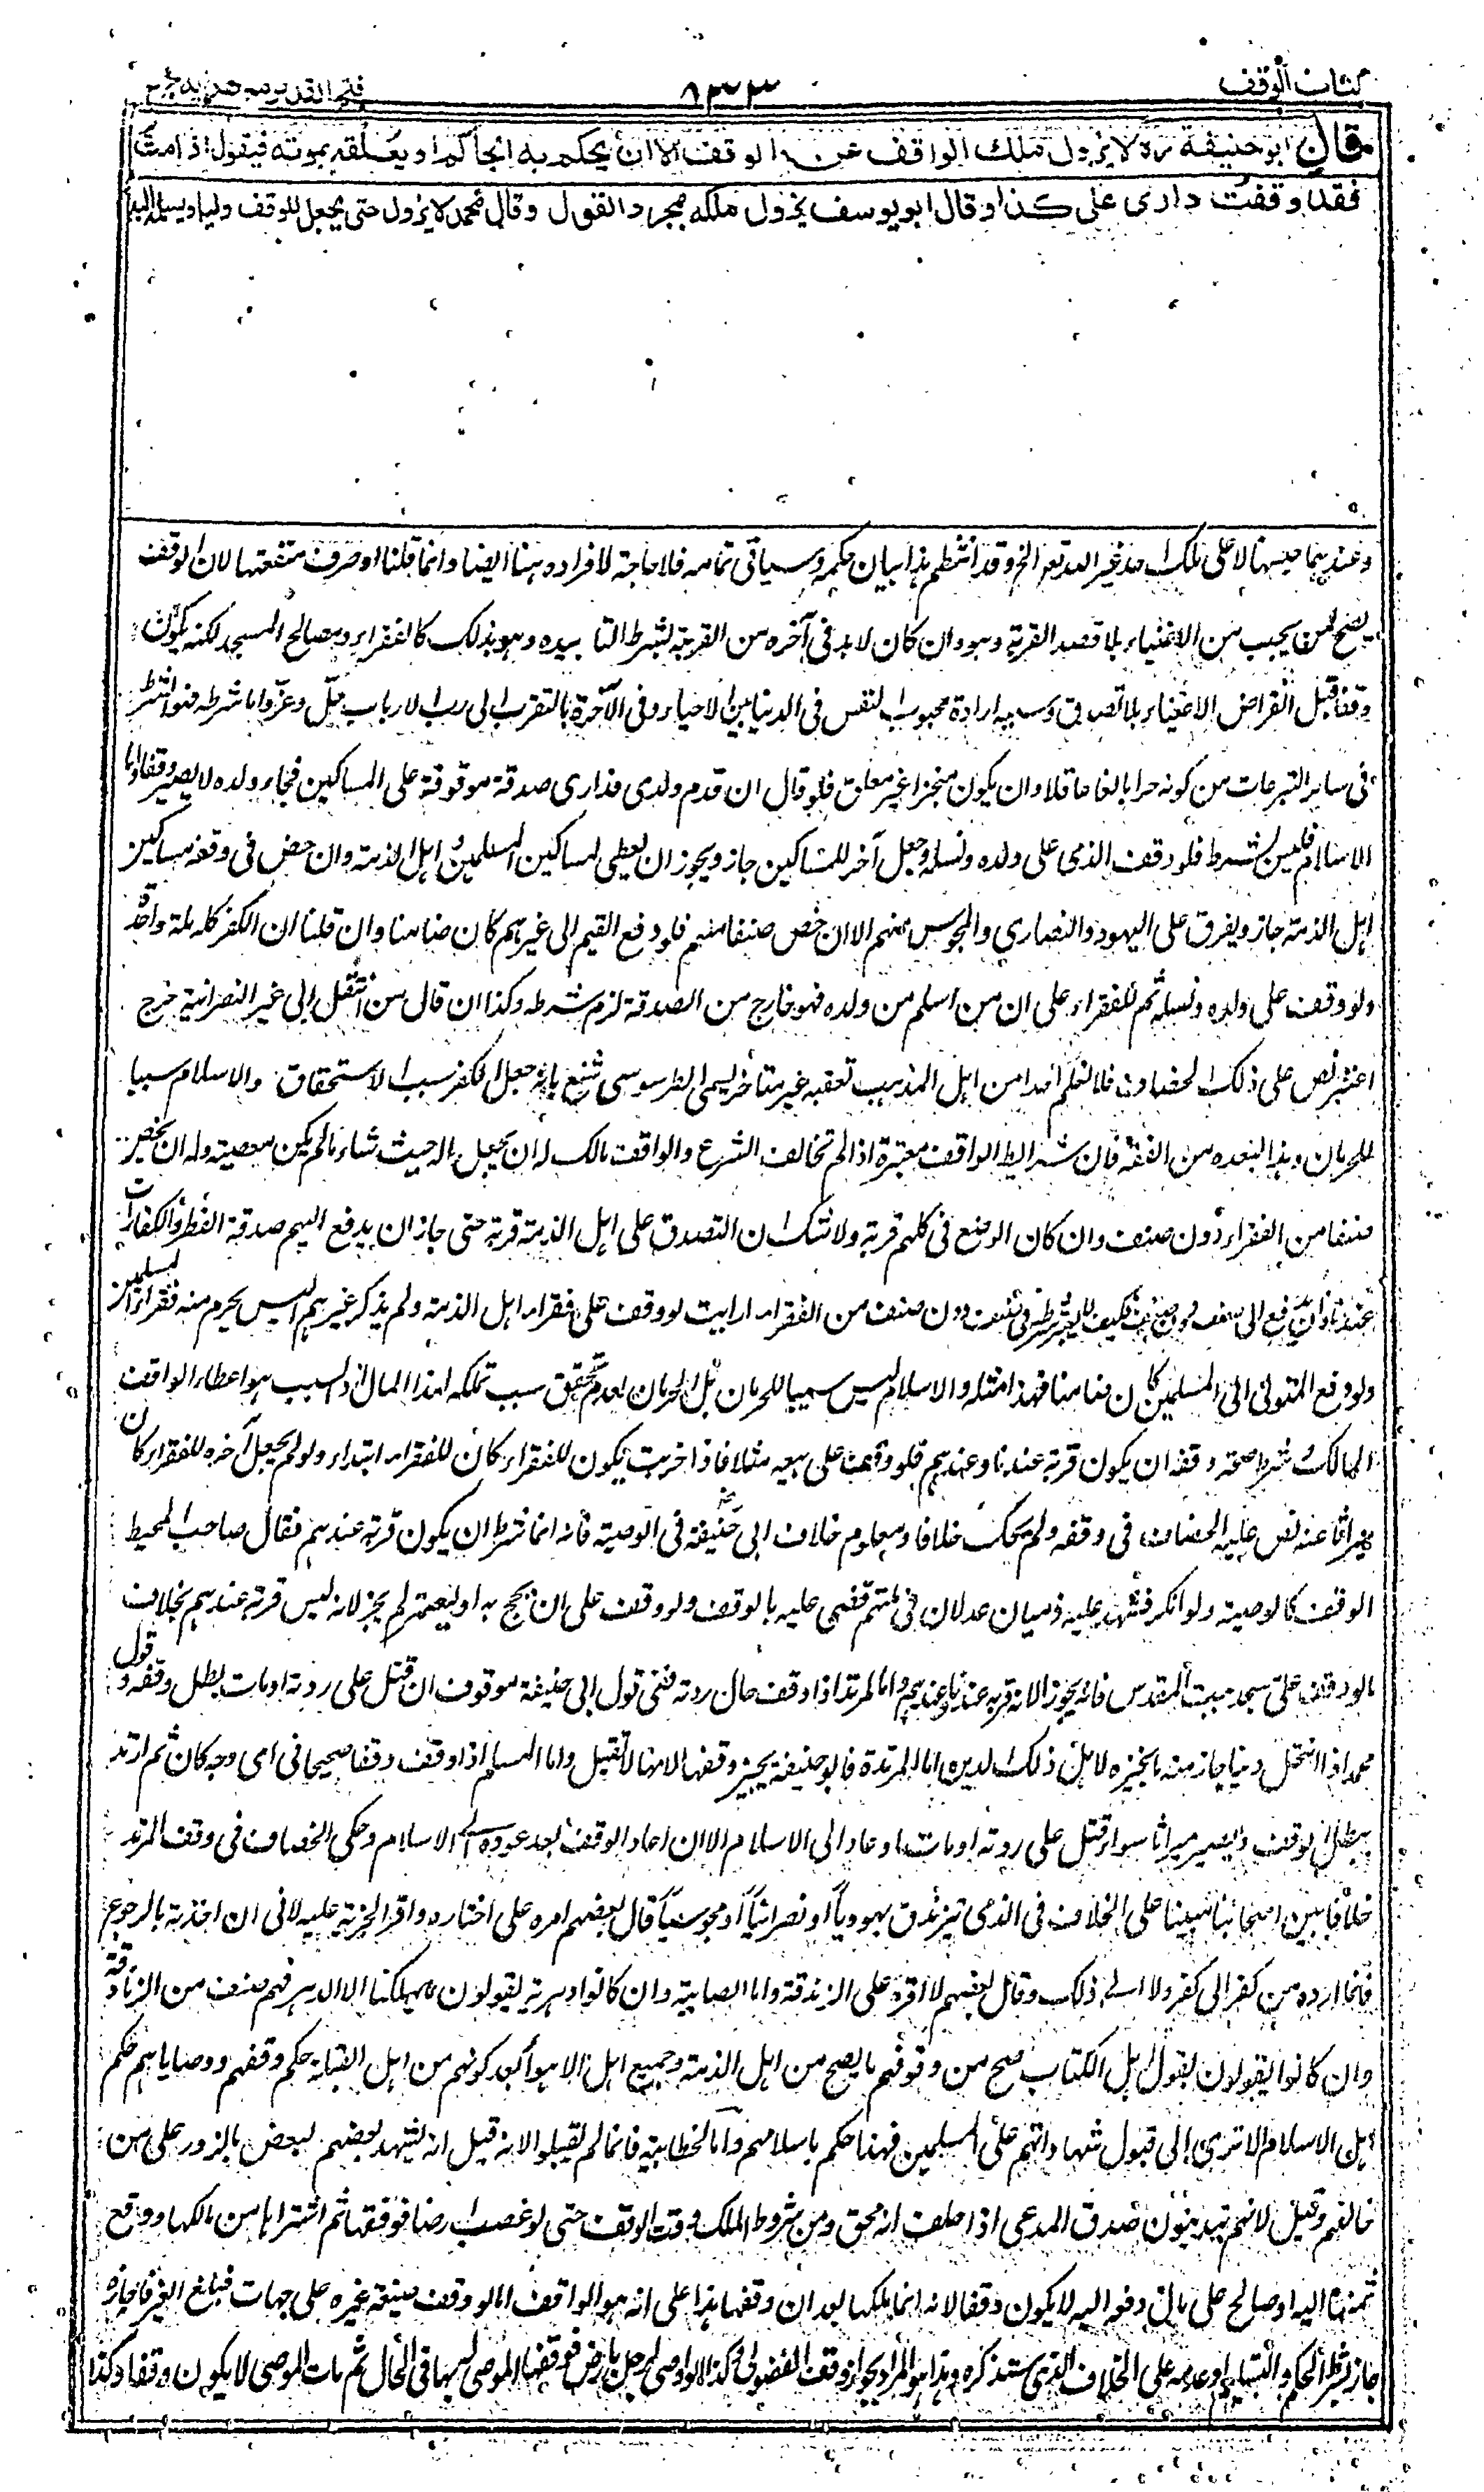 كتاب الوقف
٨٣٣
فتح القدير مع هداية ج ٢
قال ابو حنيفة ره لا يزول ملك الواقف عن الوقف الا ان يحكم به الحاكم او يعلقه بموته فيقول اذا مت
فقد وقفت داري على كذا وقال ابو يوسف يزول ملكه بمجرد القول وقال محمد لا يزول حتى يجعل للوقف وليا ويسلمه اليه
وعندهما حبسها لا على ملك احد غير الله تع الخ وقد انتظم هذا بيان حكمه وسياتي تمامه فلا حاجة لافراده هنا ايضا وانما قلنا او صرف منفعتها لان الوقف
يصح لمن يحب من الاغنياء بلا قصد القربة وهو وان كان لا بد في آخره من القربة لشرط التابيد وهو بذلك كالفقراء ومصالح المسجد لكنه يكون
وقفا قبل انقراض الاغنياء بلا تصدق وسببه ارادة محبوب النفس في الدنيا بين الاحياء وفي الآخرة بالتقرب الى رب الارباب جل وعز واما شرطه فهو الشرط
في ساير التبرعات من كونه حرا بالغا عاقلا وان يكون منجزا غير معلق فلو قال ان قدم ولدي فداري صدقة موقوفة على المساكين فجاء ولده لا يصير وقفا واما
الاسلام فليس بشرط فلو وقف الذمي على ولده ونسله وجعل آخر للمساكين جاز ويجوز ان يعطي لمساكين المسلمين و اهل الذمة وان خص في وقفه مساكين
اهل الذمة جاز ويفرق على اليهود والنصاري والمجوس منهم الا ان خص صنفا منهم فلو دفع القيم الى غيرهم كان ضامنا وان قلنا ان الكفر كله ملة واحدة
ولو وقف على ولده ونسله ثم للفقراء على ان من اسلم من ولده فهو خارج من الصدقة لزم شرطه وكذا ان قال من انتقل الى غير النصرانية خرج
اعتبر نص على ذلك الخصاف فلا نعلم احدا من اهل المذهب تعقبه غير متاخر يسمى الطرسوسي شنع بانه جعل الكفر سبب الاستحقاق والاسلام سببا
للحرمان وهذا لبعده من الفقه فان شرائط الواقف معتبرة اذا لم تخالف الشرع والواقف مالك له ان يجعل ماله حيث شاء ما لم يكن معصية وله ان يخص
صنفا من الفقراء دون صنف وان كان الوضع في كلهم قربة ولا شك ان التصدق على اهل الذمة قربة حتى جاز ان يدفع اليهم صدقة الفطر والكفارات
عندنا فكيف لا يعتبر شرطه في صنف دون صنف من الفقراء ارايت لو وقف على فقراء اهل الذمة ولم يذكر غيرهم اليس يحرم منه فقراء المسلمين
ولو دفع المتولي الى المسلمين كان ضامنا فهذا مثله والاسلام ليس سببا للحرمان بل الحرمان لعدم تحقق سبب تملكه لهذا المال والسبب هو اعطاء الواقف
المالك وشرط صحة وقفه ان يكون قربة عندنا وعندهم فلو وقف على بيعة مثلا فاذا خربت يكون للفقراء كان للفقراء ابتداء ولو لم يجعل آخره للفقراء كان
ميراثا عنه نص عليه الخصاف في وقفه ولم يحك خلافا ومعلوم خلاف ابي حنيفة في الوصية فانه انما شرط ان يكون قربة عندهم فقال صاحب المحيط
الوقف كالوصية ولو انكر فشهد عليه ذميان عدلان في ملتهم قضي عليه بالوقف ولو وقف على ان يحج به او يعتمر لم يجز لانه ليس قربة عندهم بخلاف
ما لو وقف على مسجد بيت المقدس فانه يجوز لانه قربة عندنا وعندهم واما المرتد اذا وقف حال ردته ففي قول ابي حنيفة موقوف ان قتل على ردته او مات بطل وقفه و قول
محمد اذا انتحل دينا جاز منه ما نجيزه لاهل ذلك الدين اما المرتدة فابو حنيفة يجيز وقفها لانها لا تقتل واما المسلم اذا وقف وقفا صحيحا في اي وجه كان ثم ارتد
يبطل الوقف ويصير ميراثا سواء قتل على ردته او مات او عاد الى الاسلام الا ان اعاد الوقف بعد عوده الى الاسلام وحكى الخصاف في وقف المرتد
خلافا بين اصحابنا مبينا على الخلاف في الذمي تزندق يهوديا او نصرانيا او مجوسيا قال بعضهم امره على اختاره واقر الجزية عليه لاني ان اخذته بالرجوع
فانما ارده من كفر الى كفر ولا ارى ذلك وقال بعضهم لا اقره على الزندقة واما الصابية وان كانوا دهرية يقولون ما يهلكنا الا الدهر فهم صنف من الزنادقة
وان كانوا يقولون بقول اهل الكتاب صح من وقوفهم ما يصح من اهل الذمة وجميع اهل الاهواء بعد كونهم من اهل القبلة حكم وقفهم ووصاياهم حكم
اهل الاسلام الا ترى الى قبول شهادتهم على المسلمين فهذا حكم باسلامهم واما الخطابية فانما لم يقبلوا لانه قيل انه يشهد بعضهم لبعض بالزور على من
خالفهم وقيل لانهم يتدينون صدق المدعي اذا حلف انه محق ومن شروط الملك وقت الوقف حتى لو غصب ارضا فوقفها ثم اشتراها من مالكها ودفع
ثمنها اليه او صالح على مال دفعه اليه لا يكون وقفا لانه انما ملكها بعد ان وقفها هذا على انه هو الواقف اما لو وقف ضيعة غيره على جهات فبلغ الغير فاجازه
جاز بشرط الحكم والتسليم او عدمه على الخلاف الذي سنذكره وهذا هو المراد بجواز وقف الفضولي وكذا لو اوصى لرجل بارض فوقفها الموصى له بها في الحال ثم مات الموصي لا يكون وقفا وكذا